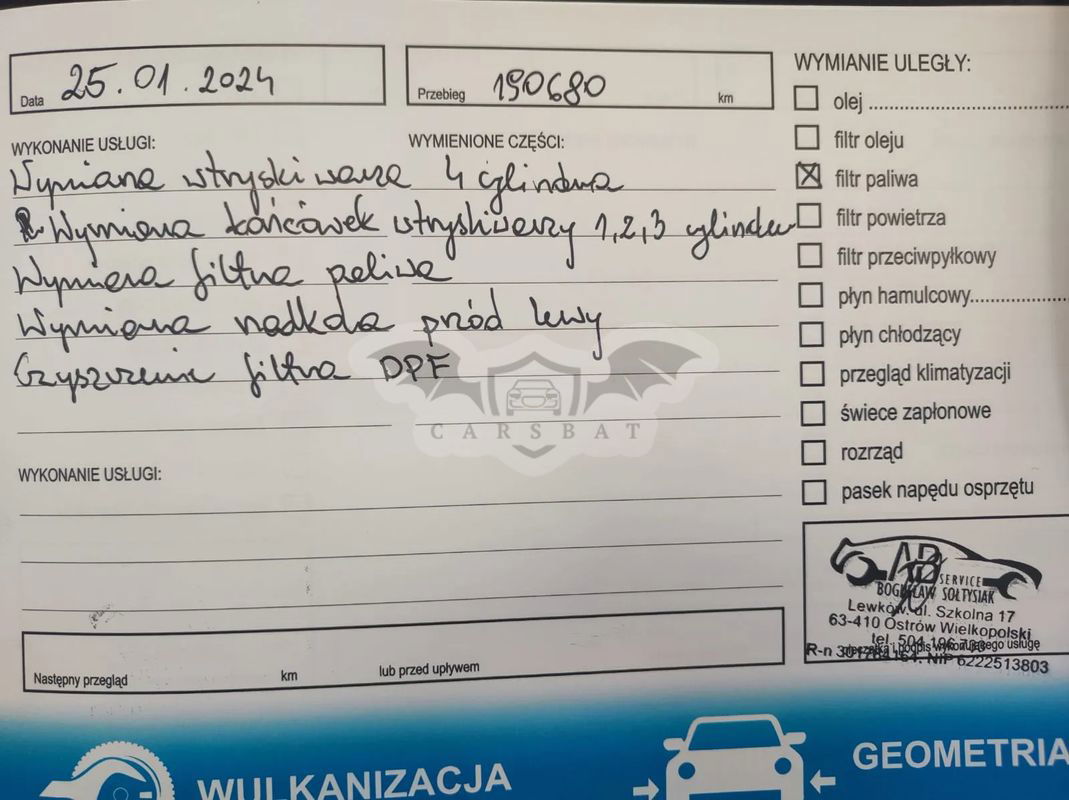 Data 25.01.2024
Przebieg 190680 km
WYKONANE USŁUGI:
WYMIENIONE CZĘŚCI:
Wymiana wtryskiwacza 4 cylindra
Wymiana końcówek wtryskiwaczy 1,2,3 cylinder
Wymiana filtra paliwa
Wymiana nadkola przód lewy
Czyszczenie filtra DPF
CARSBAT
WYKONANIE USŁUGI:
Następny przegląd km lub przed upływem
WYMIANIE ULEGŁY:
olej
filtr oleju
filtr paliwa
filtr powietrza
filtr przeciwpyłkowy
płyn hamulcowy
płyn chłodzący
przegląd klimatyzacji
świece zapłonowe
rozrząd
pasek napędu osprzętu
AB
SERVICE
BOGUSŁAW SOŁTYSIAK
Lewków, ul. Szkolna 17
63-410 Ostrów Wielkopolski
tel. 504 196
pieczątka i podpis wykonującego usługę
R-n NIP 6222513803
WULKANIZACJA
GEOMETRIA